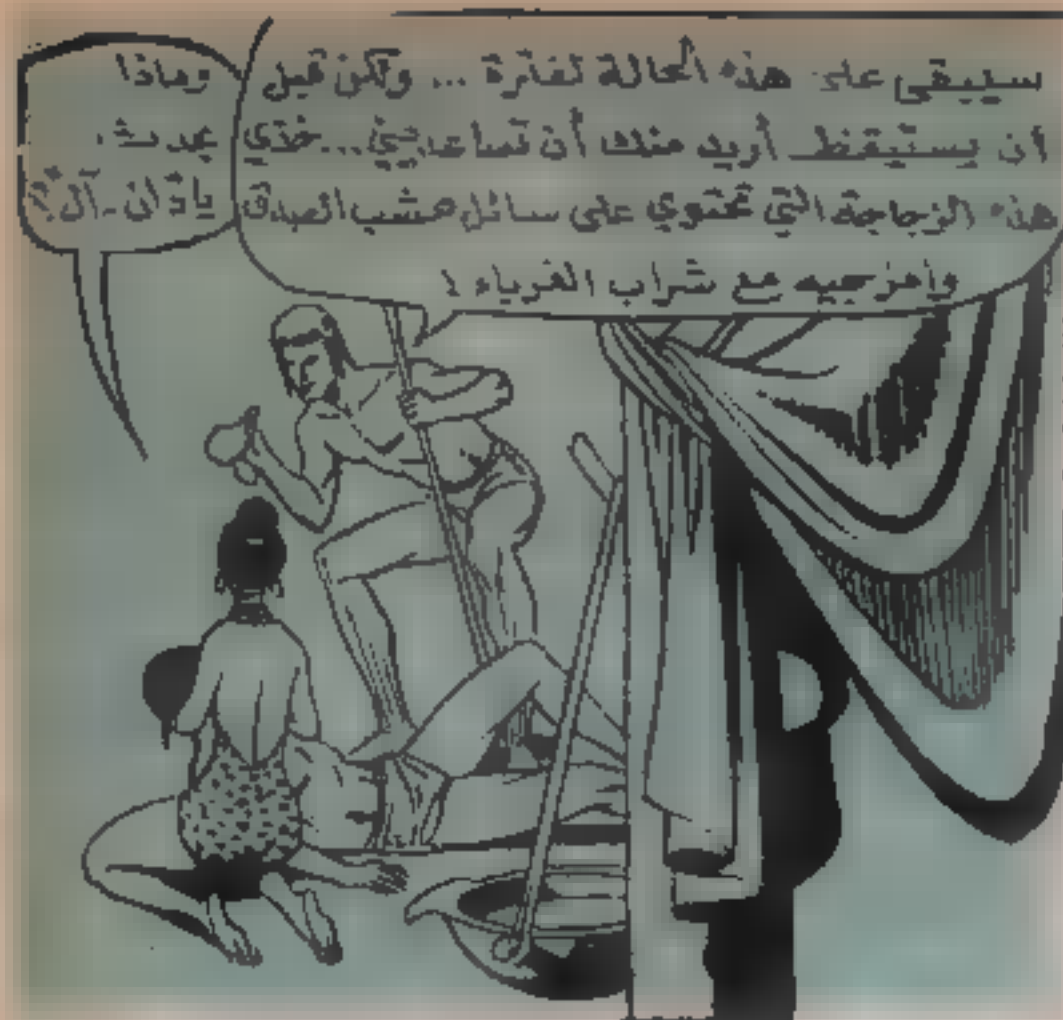 سيبقى على هذه الحالة لفترة ... ولكن قبل
أن يستيقظ أريد منك أن تساعديني...خذي
هذه الزجاجة التي تحتوي على سائل عشب الصدق
وامزجيه مع شراب الغرباء !
وماذا
يحدث
يا ذان-آلن؟